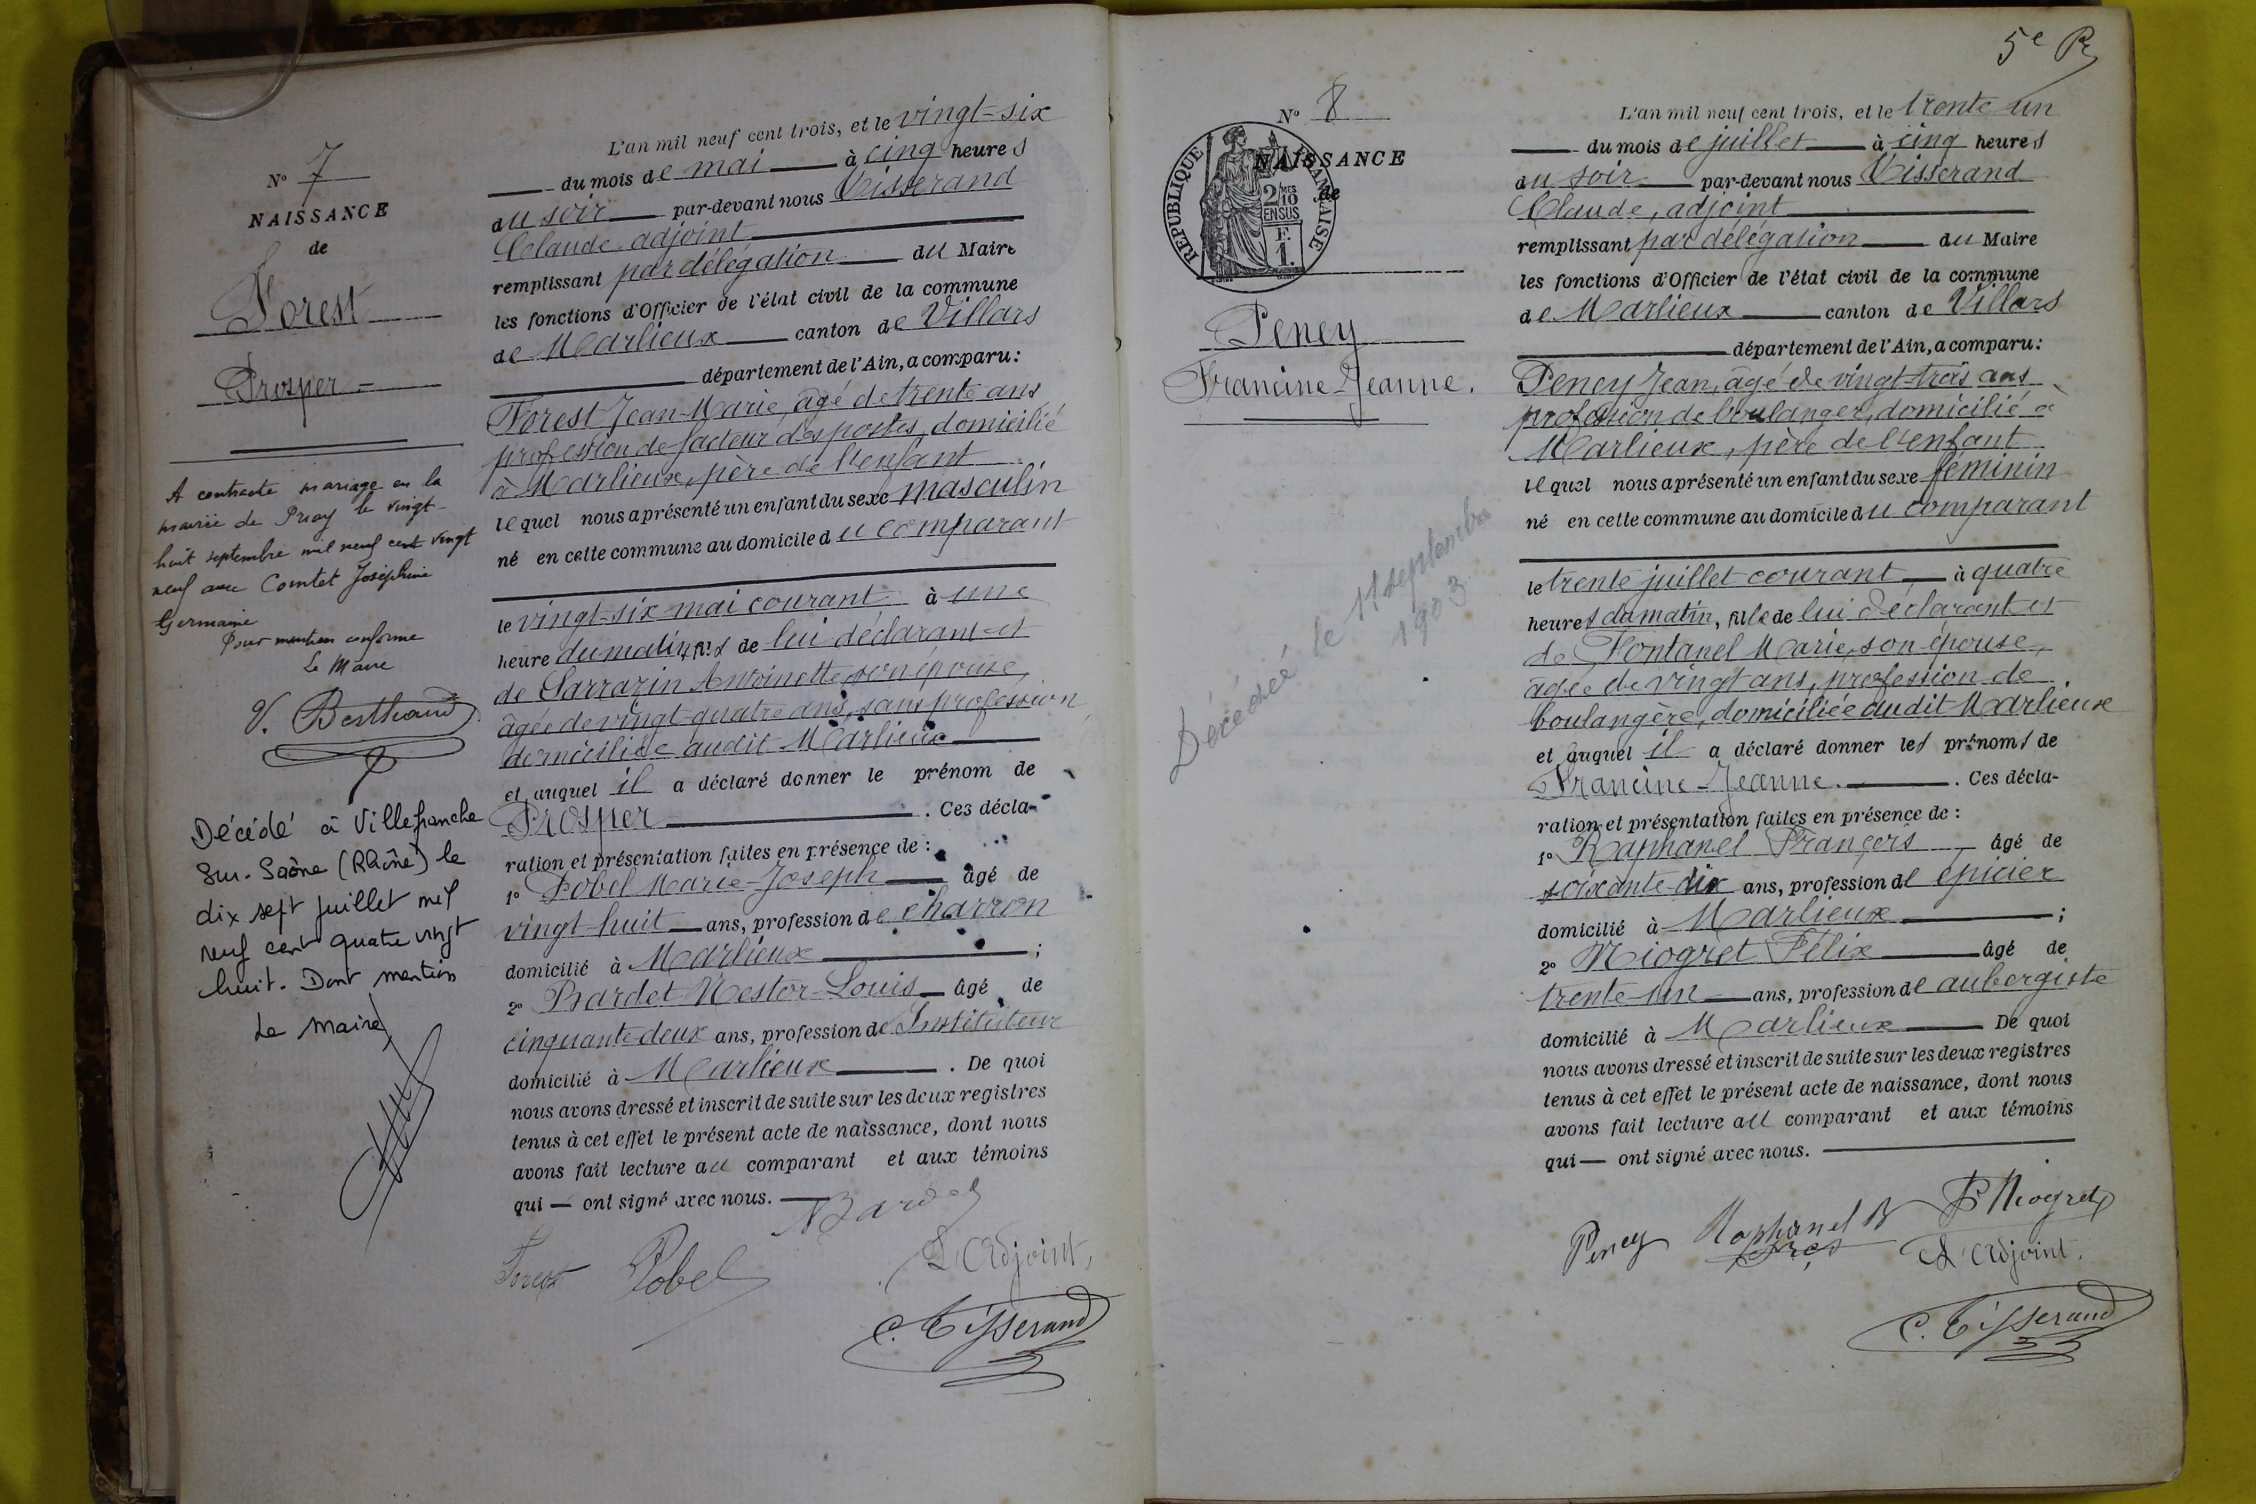 N° 7
NAISSANCE
de
Forest
Prosper
A contracté mariage en la
mairie de Prioy le vingt-
huit septembre mil neuf cent vingt
neuf avec Comtet Joséphine
Germaine
Pour mention conforme
Le Maire
V. Berthaud
Décédé à Villefranche
Sur-Saône (Rhône) le
dix sept juillet mil
neuf cent quatre vingt
huit. Dont mention
Le Maire
L'an mil neuf cent trois, et le vingt-six
du mois de mai à cinq heures
du soir par-devant nous Tisserand
Claude adjoint
remplissant par délégation du Maire
les fonctions d'Officier de l'état civil de la commune
de Marlieux canton de Villars
département de l'Ain, a comparu:
Forest Jean-Marie, âgé de trente ans
profession de facteur des postes, domicilié
à Marlieux, père de l'enfant
lequel nous a présenté un enfant du sexe masculin
né en cette commune au domicile du comparant
le vingt-six mai courant à une
heure du matin, fils de lui déclarant et
de Sarrazin Antoinette, son épouse,
âgée de vingt-quatre ans, sans profession
domiciliée audit Marlieux
et auquel il a déclaré donner le prénom de
Prosper. Ces décla-
ration et présentation faites en présence de :
1° Pobel Marie-Joseph âgé de
vingt-huit ans, profession de charron
domicilié à Marlieux ;
2° Bardet Nestor-Louis âgé de
cinquante-deux ans, profession de Instituteur
domicilié à Marlieux. De quoi
nous avons dressé et inscrit de suite sur les deux registres
tenus à cet effet le présent acte de naissance, dont nous
avons fait lecture au comparant et aux témoins
qui — ont signé avec nous.
NBardet
Forest Pobel L'Adjoint,
C. Tisserand
5e
N° 8
NAISSANCE
de
REPUBLIQUE FRANCAISE
2/10 MES
EN SUS
F.
1.
Peney
Francine-Jeanne.
Décédée le 11 septembre
1903
L'an mil neuf cent trois, et le trente un
du mois de juillet à cinq heures
du soir par-devant nous Tisserand
Claude, adjoint
remplissant par délégation du Maire
les fonctions d'Officier de l'état civil de la commune
de Marlieux canton de Villars
département de l'Ain, a comparu:
Peney Jean, âgé de vingt-trois ans
profession de boulanger, domicilié à
Marlieux, père de l'enfant
lequel nous a présenté un enfant du sexe féminin
né en cette commune au domicile du comparant
le trente juillet courant à quatre
heures du matin, fille de lui déclarant et
de Fontanel Marie, son épouse,
âgée de vingt ans, profession de
boulangère, domiciliée audit Marlieux
et auquel il a déclaré donner les prénoms de
Francine-Jeanne. Ces décla-
ration et présentation faites en présence de :
1° Raphanel François âgé de
soixante-dix ans, profession de épicier
domicilié à Marlieux ;
2° Miogret Félix âgé de
trente-un ans, profession de aubergiste
domicilié à Marlieux De quoi
nous avons dressé et inscrit de suite sur les deux registres
tenus à cet effet le présent acte de naissance, dont nous
avons fait lecture au comparant et aux témoins
qui — ont signé avec nous.
Peney Raphanel Miogret
L'Adjoint.
C. Tisserand